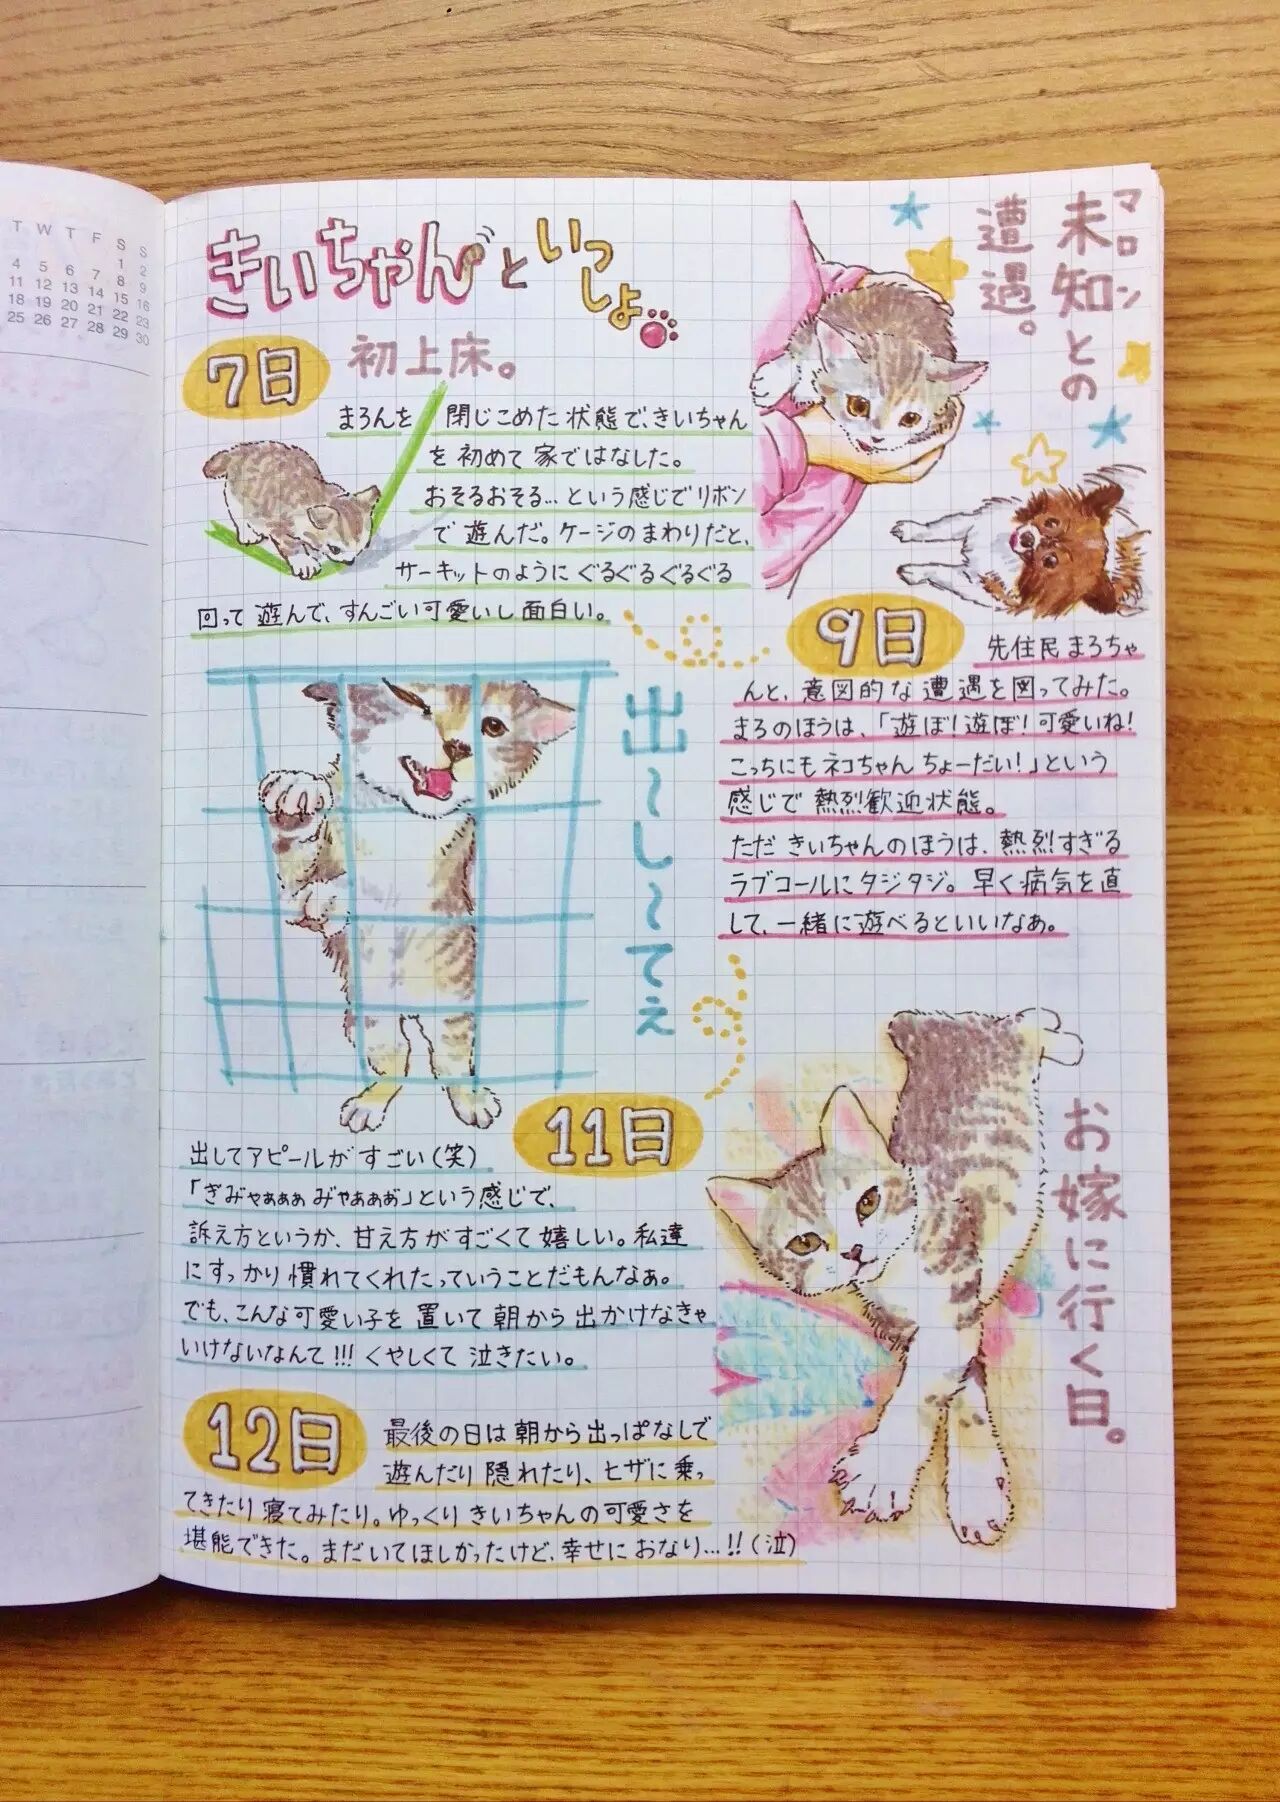 T W T F S S
1 2
4 5 6 7 8 9
11 12 13 14 15 16
18 19 20 21 22 23
25 26 27 28 29 30
きぃちゃんといっしょ
7日 初上床。
まろんを閉じこめた状態で、きぃちゃん
を初めて家ではなした。
おそるおそる…という感じでリボン
で遊んだ。ケージのまわりだと、
サーキットのようにぐるぐるぐるぐる
回って遊んで、すんごい可愛いし面白い。
未知との
マロン
遭遇。
9日
先住民まろちゃ
んと、意図的な遭遇を図ってみた。
まろのほうは、「遊ぼ!遊ぼ!可愛いね!
こっちにもネコちゃんちょーだい!」という
感じで熱烈歓迎状態。
ただきぃちゃんのほうは、熱烈すぎる
ラブコールにタジタジ。早く病気を直
して、一緒に遊べるといいなぁ。
出〜し〜てぇ
11日
出してアピールがすごい(笑)
「ぎみゃぁぁぁみゃぁぁぁ」という感じで、
訴え方というか、甘え方がすごくて嬉しい。私達
にすっかり慣れてくれたっていうことだもんなぁ。
でも、こんな可愛い子を置いて朝から出かけなきゃ
いけないなんて!!! くやしくて泣きたい。
お嫁に行く日。
12日
最後の日は朝から出っぱなしで
遊んだり隠れたり、ヒザに乗っ
てきたり寝てみたり。ゆっくりきぃちゃんの可愛さを
堪能できた。まだいてほしかったけど、幸せにおなり…!!(泣)